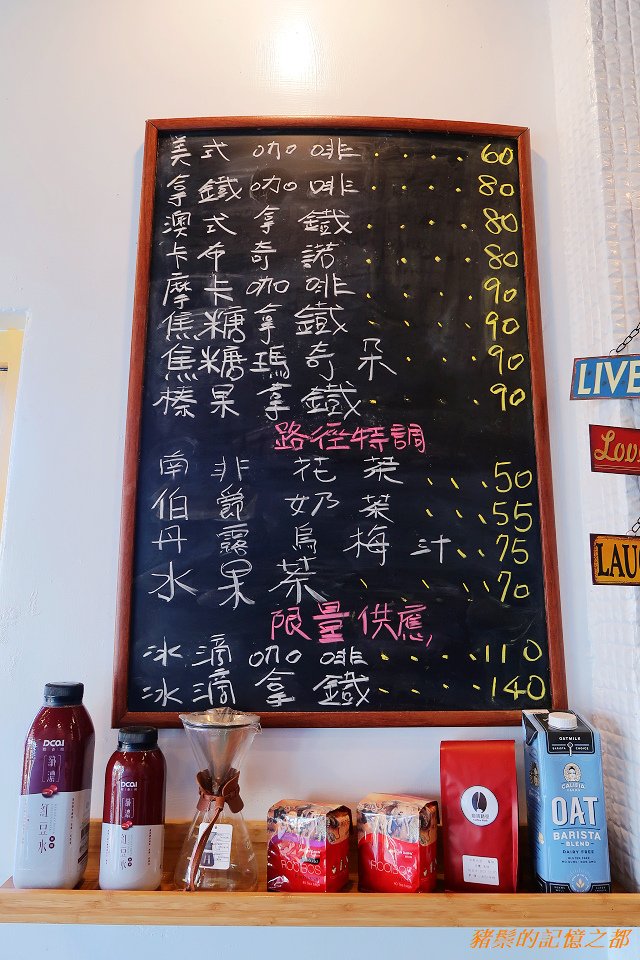 美式咖啡 . . . . . 60
拿鐵咖啡 . . . . . 80
澳式拿鐵 . . . . . 80
卡布奇諾 . . . . . 80
摩卡咖啡 . . . . . 90
焦糖拿鐵 . . . . . 90
焦糖瑪奇朵 . . . . 90
榛果拿鐵 . . . . . 90
路徑特調
南非花茶 . . . 50
伯爵奶茶 . . . 55
丹露烏梅汁 . . 75
水果茶 . . . . . 70
限量供應
冰滴咖啡 . . . . . 110
冰滴拿鐵 . . . . . 140
LIVE
Lov
LAU
DCAL
纖濃
紅豆水
DCAL
纖濃
紅豆水
ROOIBOS
ROOIBOS
OATMILK
CALIFIA
FARMS
OAT
BARISTA
BLEND
DAIRY FREE
豬鬃的記憶之都